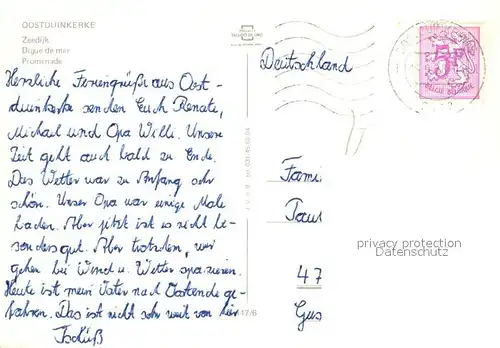 OOSTDUINKERKE
Zeedijk
Digue de mer
Promenade
Herzliche Feriengrüße aus Oost-
duinkerke senden Euch Renate,
Michael und Opa Willi. Unsere
Zeit geht auch bald zu Ende.
Das Wetter war zu Anfang sehr
schön. Unser Opa war einige Male
baden. Aber jetzt ist es nicht be-
sonders gut. Aber trotzdem, wir
gehen bei Wind u. Wetter spazieren.
Heute ist mein Vater nach Oostende ge-
fahren. Das ist nicht sehr weit von hier
Tschüß
Deutschland
5F
BELGIE BELGIQUE
Fami
Paul
47
Gus
privacy protection
Datenschutz